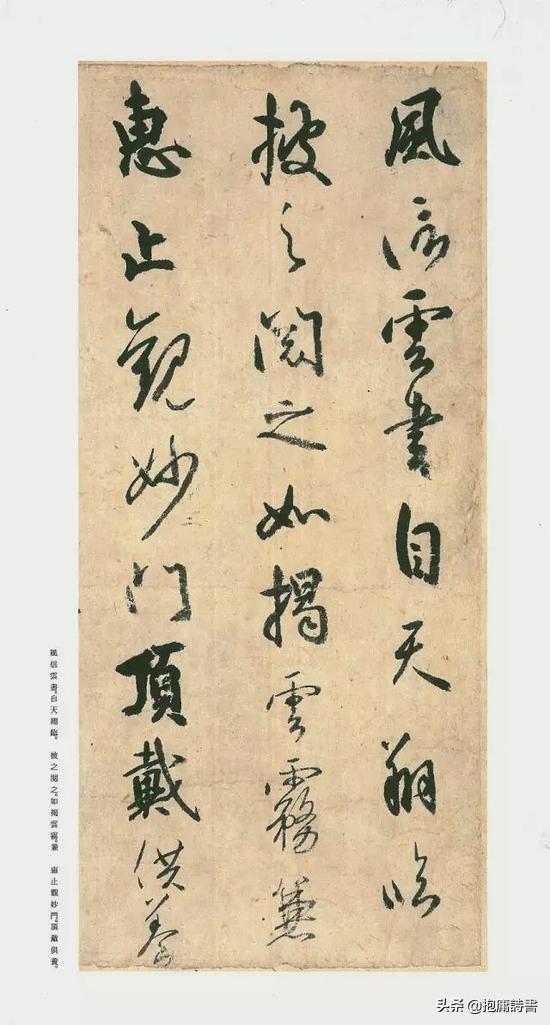 風信雲書自天翔臨
披之閱之如揭雲霧兼
惠止觀妙門頂戴供養
風信雲書。自天翔臨。披之閱之。如揭雲霧。兼 惠止觀妙門。頂戴供養。
头条 @抱庸詩書